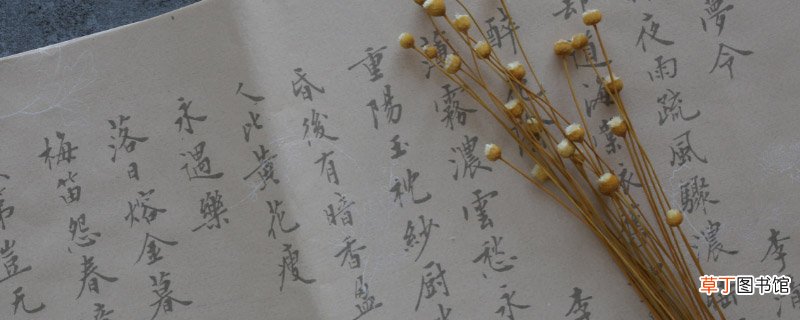 夢令 李清
夜雨疏風驟濃
道海棠依
醉 李
薄霧濃雲愁永
重陽玉枕紗厨
昏後有暗香盈
人比黃花瘦
永遇樂
落日熔金暮
梅笛怨春
第豈无
草丁图书馆